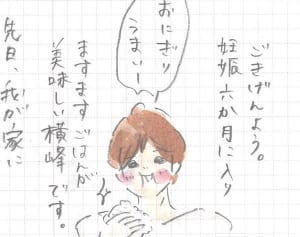 ごきげんよう。
妊娠六か月に入り
おにぎり
うまいー
ますますごはんが
美味しい横峰です。
先日、我が家に